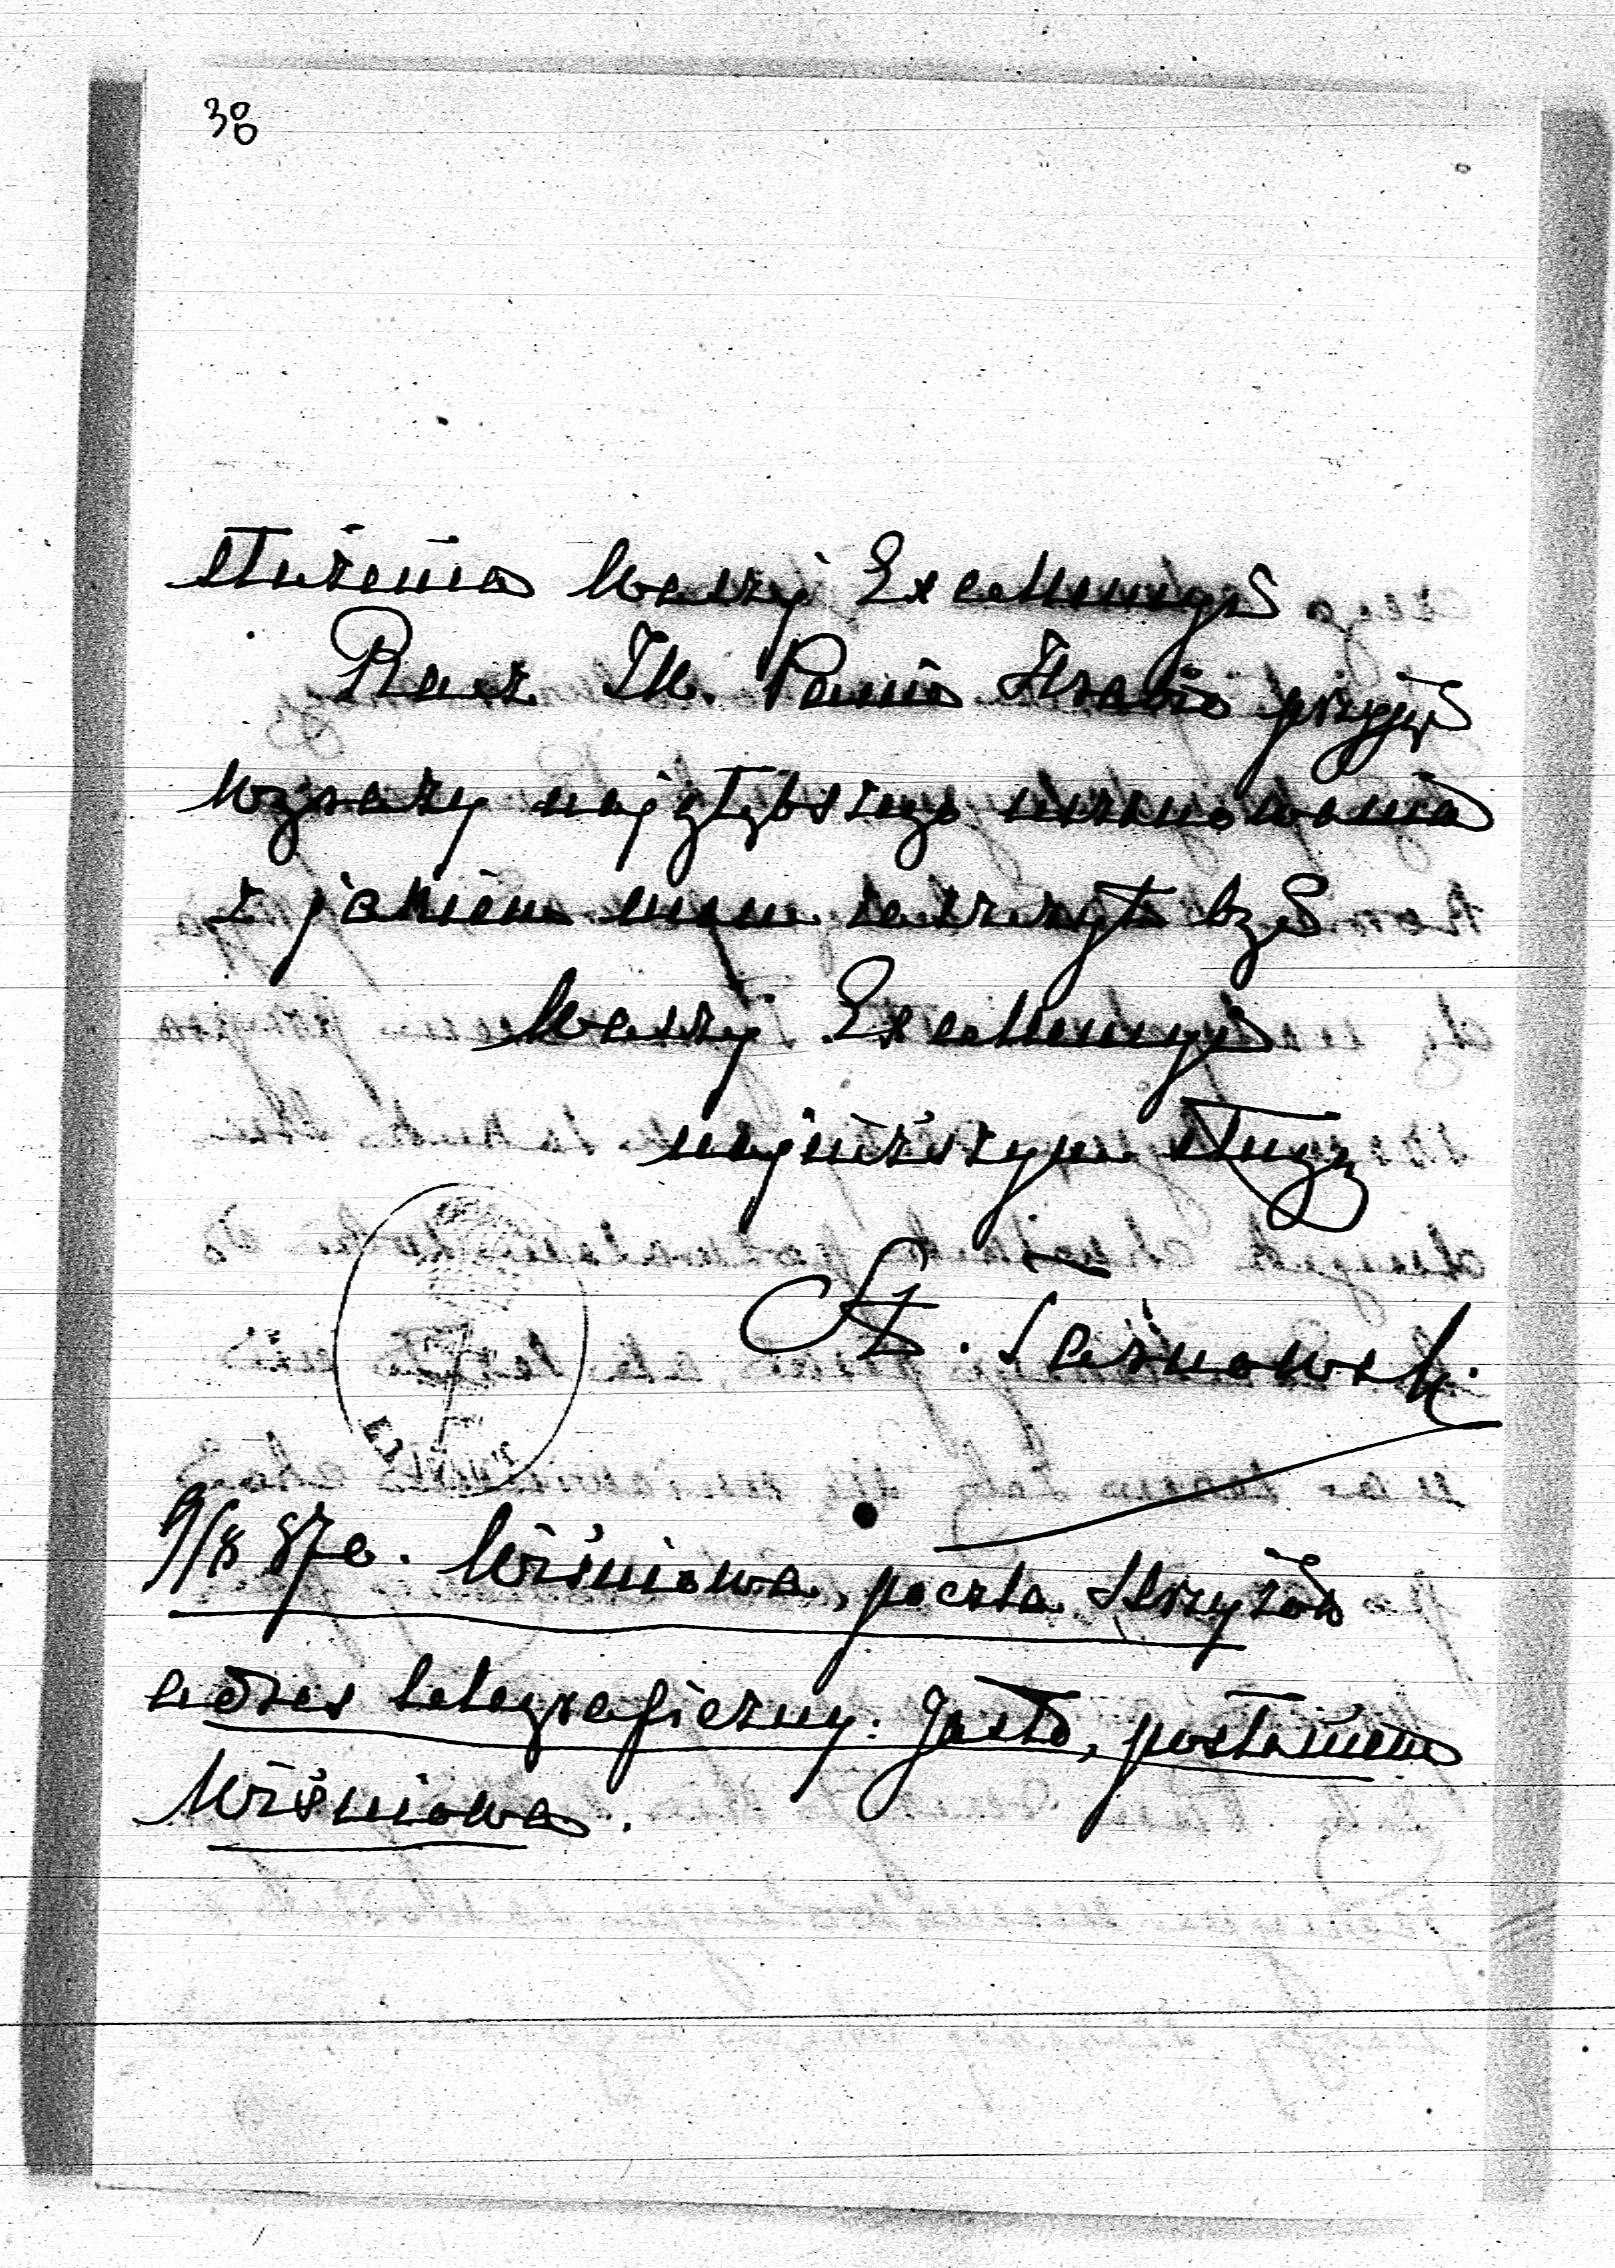 38
służenia Waszej Excellencyi
Racz JW. Panie Hrabio przyjąć
wyrazy najgłębszego uszanowania
z jakiem mam zaszczyt być
Waszej Excellencyi
najniższym sługą
St. Tarnowski
9/8 87 r. Wiśniowa, poczta Strzyżów
adres telegraficzny: Jasło, posłańcem
Wiśniowa.